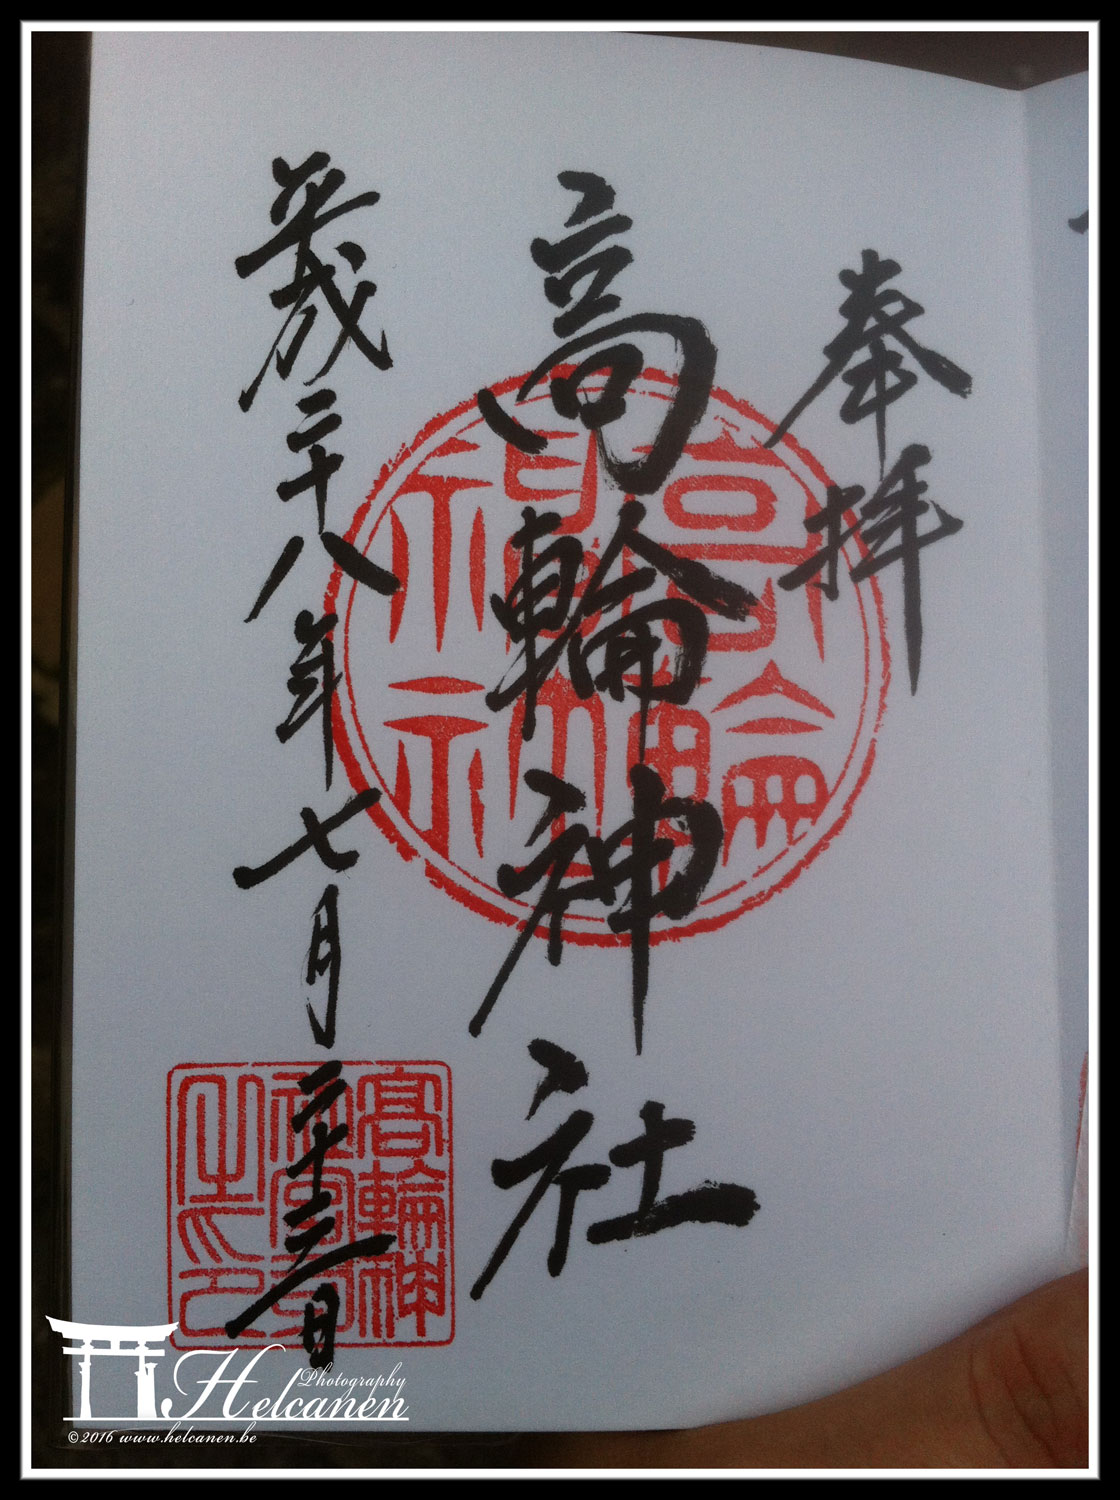 奉拝
高輪神社
平成二十八年七月二十三日
高輪神
社宮司
之印
Photography
Helcanen
©2016 www.helcanen.be